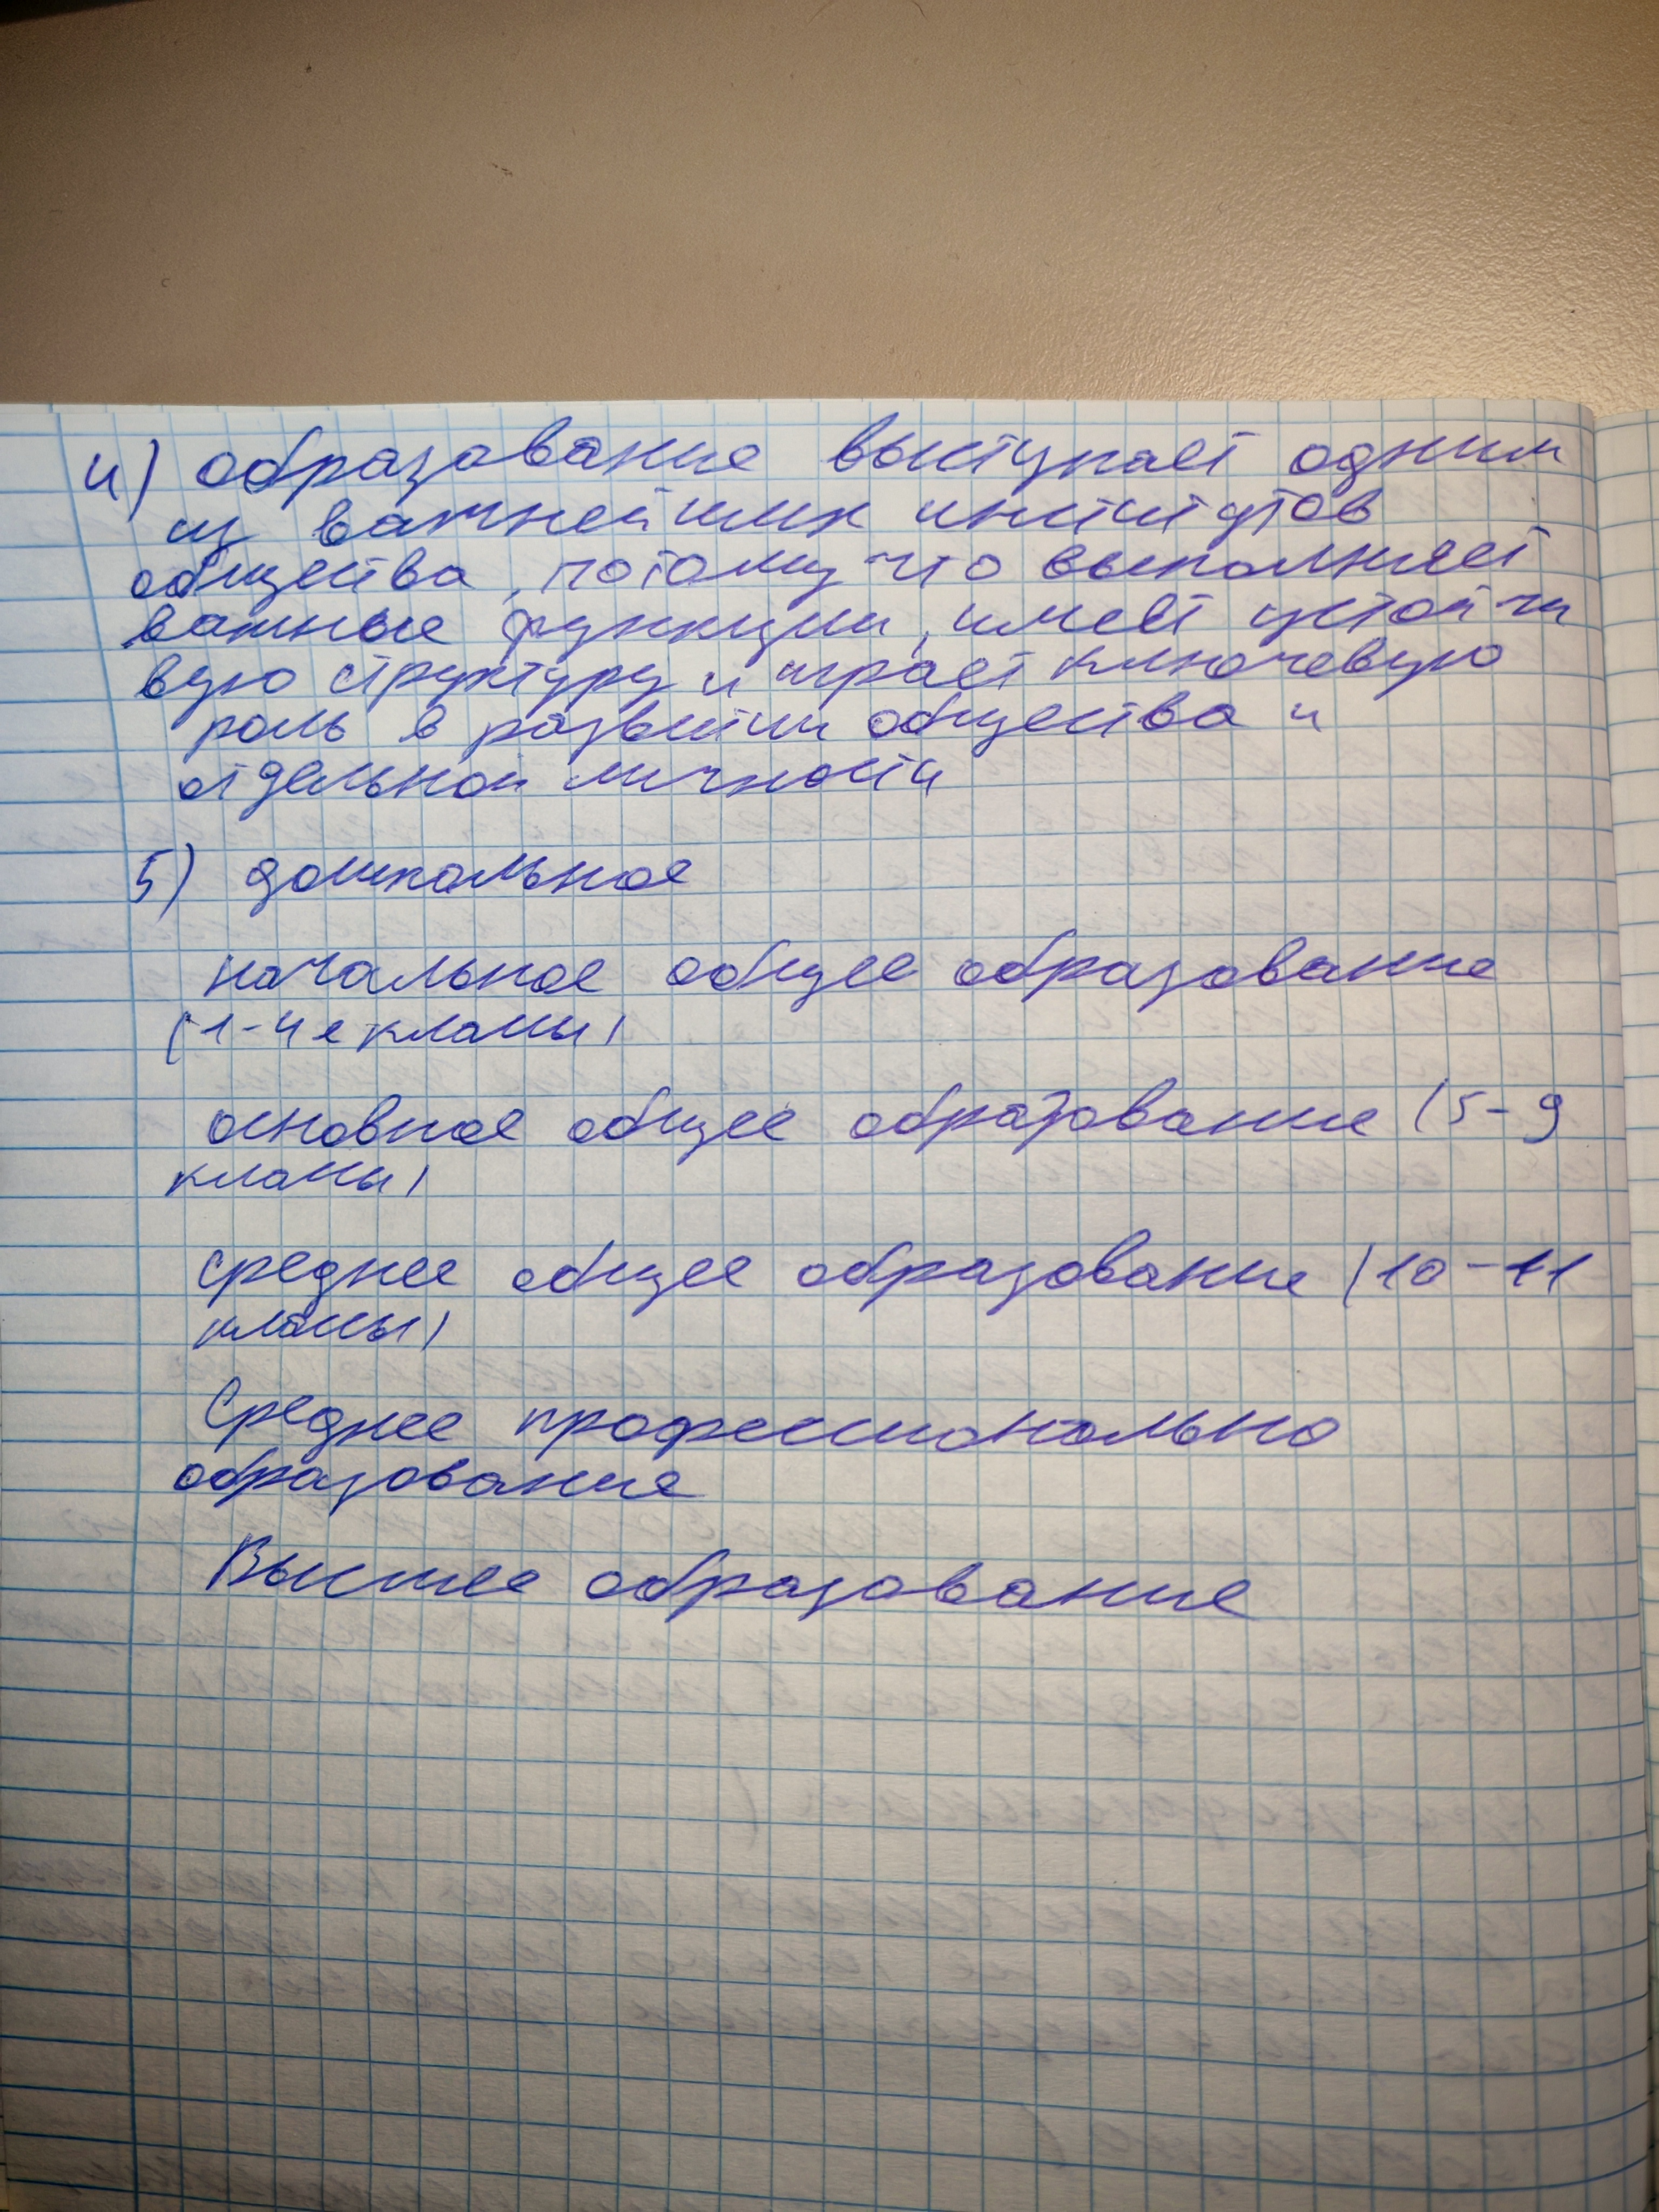 4) образование выступает одним
из важнейших институтов
общества, потому что выполняет
важные функции, имеет устойчи
вую структуру и играет ключевую
роль в развитии общества и
отдельной личности
5) дошкольное
начальное общее образование
(1-4 е классы)
основное общее образование (5-9
классы)
среднее общее образование (10-11
классы)
Среднее профессионально
образование
Высшее образование